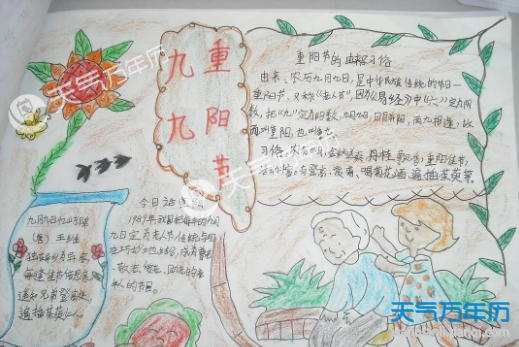 重阳节
九九
重阳节的由来习俗
由来、农历九月九日,是中华民族传统的节日—
重阳节,又称“老人节”,因为《易经》中“六”定为阴
数,把“九”定为阳数,九月九日,日月并阳,两九相逢,故
而叫重阳,也叫重九
习俗,
登高,赏菊,喝菊花酒,遍插茱萸等
九月九日忆山东兄弟
(唐)王维
独在异乡为异客,
每逢佳节倍思亲,
遥知兄弟登高处,
遍插茱萸少一人。
今日话重阳
1989年,我国把每年的九月
九日定为老人节,传统与现
代巧妙地结合,成为尊
敬老、爱老、助老的老
年人的节日。
天气万年历
天气万年历
天气万年历
天气万年历